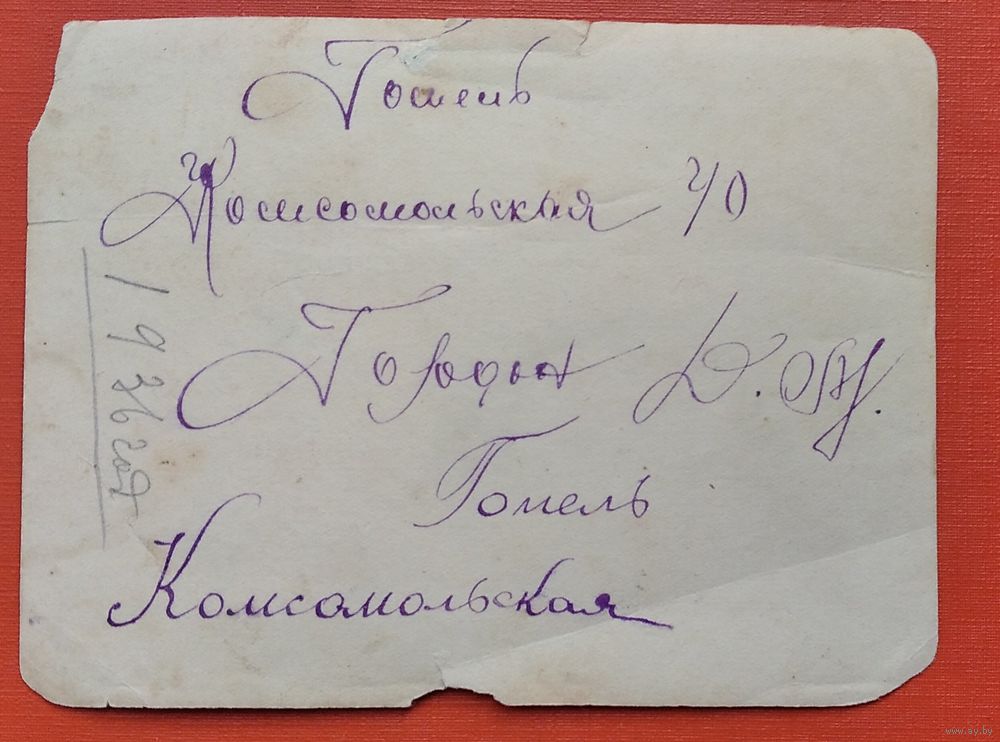 Гомель
Комсомольская 40
Гордон Д. М.
Гомель
Комсомольская
1936 год
www.ay.by